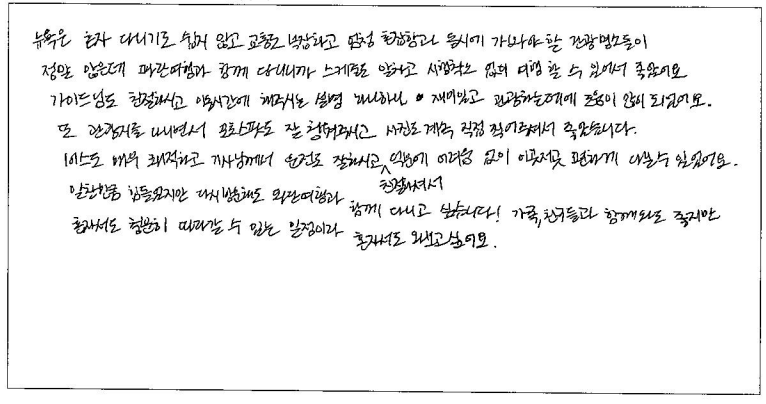 뉴욕은 혼자 다니기도 쉽지 않고 교통도 복잡하고 엄청 혼잡함과 동시에 가봐야 할 관광명소들이
정말 많은데 파란여행과 함께 다니니까 스케줄도 알차고 시행착오 없의 여행 할 수 있어서 좋았어요
가이드님도 친절하시고 이동시간에 해주시는 설명 재미있고 관광하는데에 도움이 많이 되었어요.
또 관광지를 다니면서 포토스팟도 잘 챙겨주시고 사진도 계속 직접 찍어주셔서 좋았습니다.
버스도 매우 쾌적하고 기사님께서 운전도 잘하시고 친절하셔서 덕분에 어려움 없이 이곳저곳 편하게 다닐 수 있었어요.
알찬만큼 힘들었지만 다시 방문해도 파란여행과 함께 다니고 싶습니다! 가족, 친구들과 함께와도 좋지만
혼자서도 충분히 따라갈 수 있는 일정이라 혼자서도 와보고싶어요.